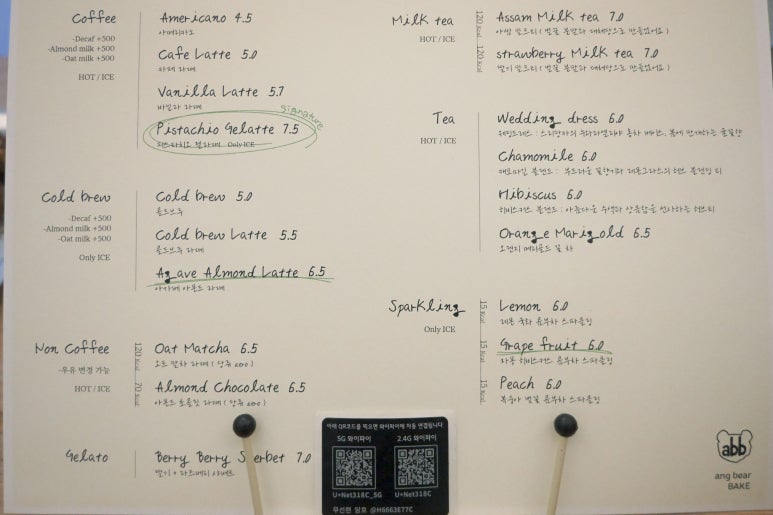 Coffee
-Decaf +500
-Almond milk +500
-Oat milk +500
HOT / ICE
Americano 4.5
아메리카노
Cafe Latte 5.0
카페 라떼
Vanilla Latte 5.7
바닐라 라떼
signature
Pistachio Gelatte 7.5
피스타치오 젤라떼 Only ICE
Cold brew
-Decaf +500
-Almond milk +500
-Oat milk +500
Only ICE
Cold brew 5.0
콜드브루
Cold brew Latte 5.5
콜드브루 라떼
Agave Almond Latte 6.5
아가베 아몬드 라떼
Non Coffee
-우유 변경 가능
HOT / ICE
120 Kcal
Oat Matcha 6.5
오트 말차 라떼 ( 당류 zero )
70 Kcal
Almond Chocolate 6.5
아몬드 초콜릿 라떼 ( 당류 zero )
Gelato
Berry Berry Sherbet 7.0
딸기 + 라즈베리 샤베트
Milk tea
HOT / ICE
120 Kcal
Assam Milk tea 7.0
아쌈 밀크티 ( 벌꿀 분말과 대체당으로 만들었어요 )
120 Kcal
strawberry Milk tea 7.0
딸기 밀크티 ( 벌꿀 분말과 대체당으로 만들었어요 )
Tea
HOT / ICE
Wedding dress 6.0
웨딩드레스 : 스리랑카의 누와라엘리야 홍차 베이스,
Chamomile 6.0
캐모마일 블렌드 : 부드러운 꿀향기와 레몬그라스의 허브 블렌딩 티
Hibiscus 6.0
히비스커스 블렌드 : 아름다운 수색과 상큼함을 선사하는 허브티
Orange Marigold 6.5
오렌지 메리골드 꽃 차
Sparkling
Only ICE
15 Kcal
Lemon 6.0
레몬 국화 콤부차 스파클링
15 Kcal
Grape fruit 6.0
자몽 히비스커스 콤부차 스파클링
15 Kcal
Peach 6.0
복숭아 벌꿀 콤부차 스파클링
아래 QR코드를 찍으면 와이파이에 자동 연결됩니다
5G 와이파이
2.4G 와이파이
U+Net318C_5G
U+Net318C
무선랜 암호 @H6663E77C
abb
ang bear
BAKE